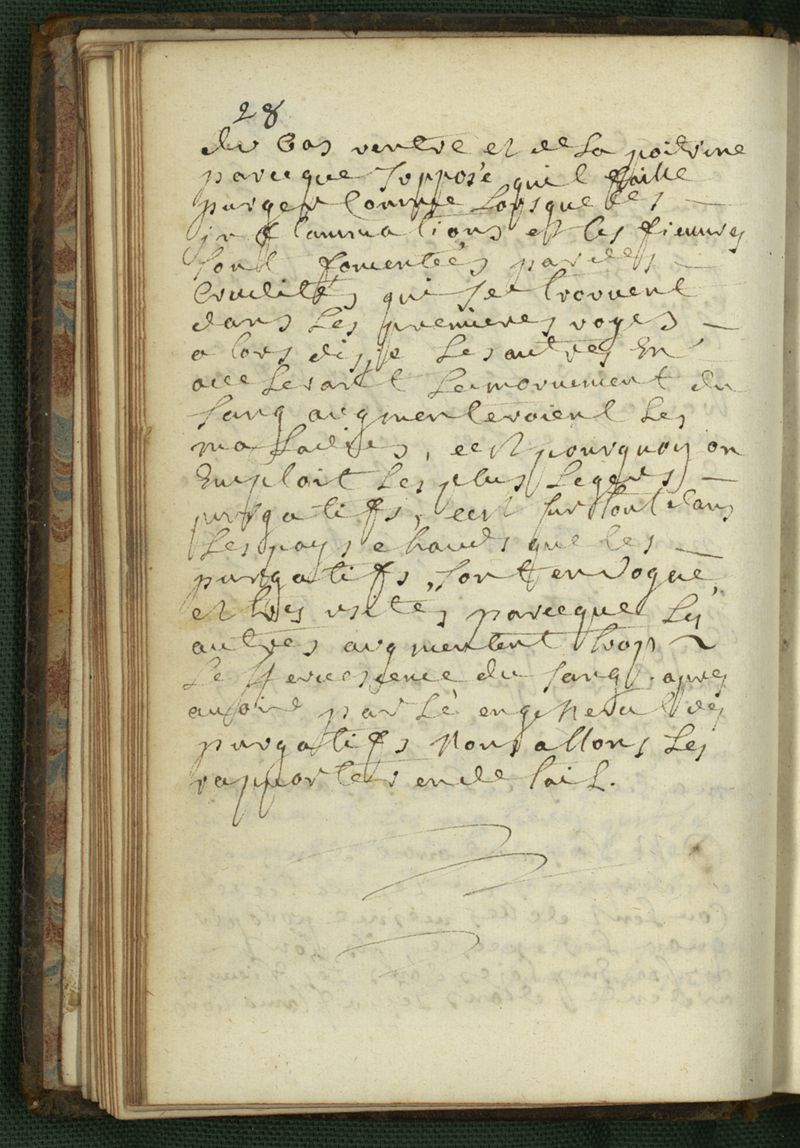 28
du bas ventre et de la poitrine
parceque supposé quil faille
purger comme lorsque les —
inflammations et les fieuvres
sont fomenteés par des —
crudités qui se trouvent
dans les premieres voyes —
alors disje les autres en
accelerant le mouvement du
sang augmenteroient les
maladies, cest pourquoy on
emploit les plus legers —
purgatifs, cest surtout dans
les pays chauds que les —
purgatifs sont en vogue
et tres usités parceque les
autres augmentent trop ~
le ffervescence du sang. apres
avoir parlé en gñeral des
purgatifs nous allons les
rapporter en detail.